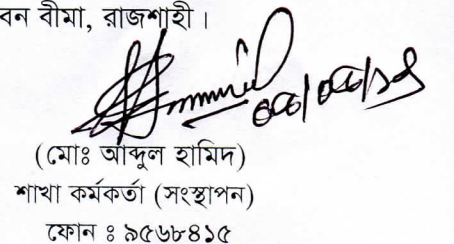 বন বীমা, রাজশাহী।
(মোঃ আব্দুল হামিদ)
শাখা কর্মকর্তা (সংস্থাপন)
ফোন ঃ ৯৫৬৮৪১৫